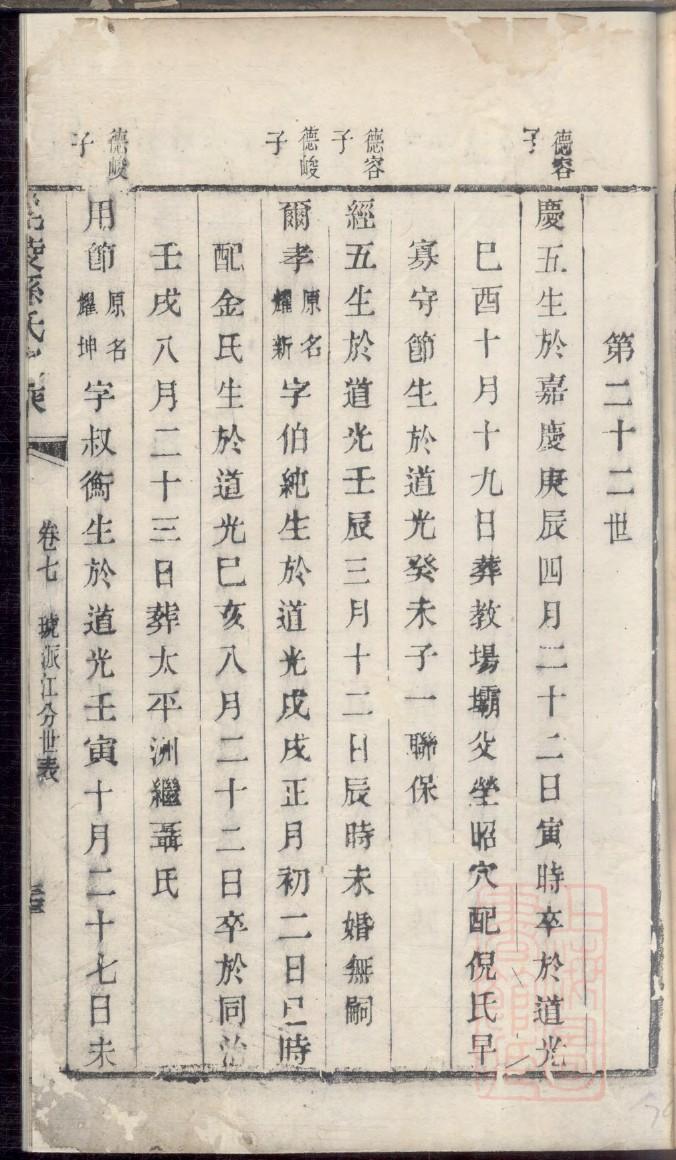 第二十二世
德容子
慶五生於嘉慶庚辰四月二十二日寅時卒於道光
巳酉十月十九日葬教場壩父塋昭穴配倪氏早
寡守節生於道光癸未子一聯保
德容子
經五生於道光壬辰三月十二日辰時未婚無嗣
德峻子
爾孝原名耀新字伯純生於道光戊戌正月初二日巳時
配金氏生於道光巳亥八月二十二日卒於同治
壬戌八月二十三日葬太平洲繼聶氏
德峻子
用節原名耀坤字叔衡生於道光壬寅十月二十七日未
陵孫氏
卷七 派江分世表